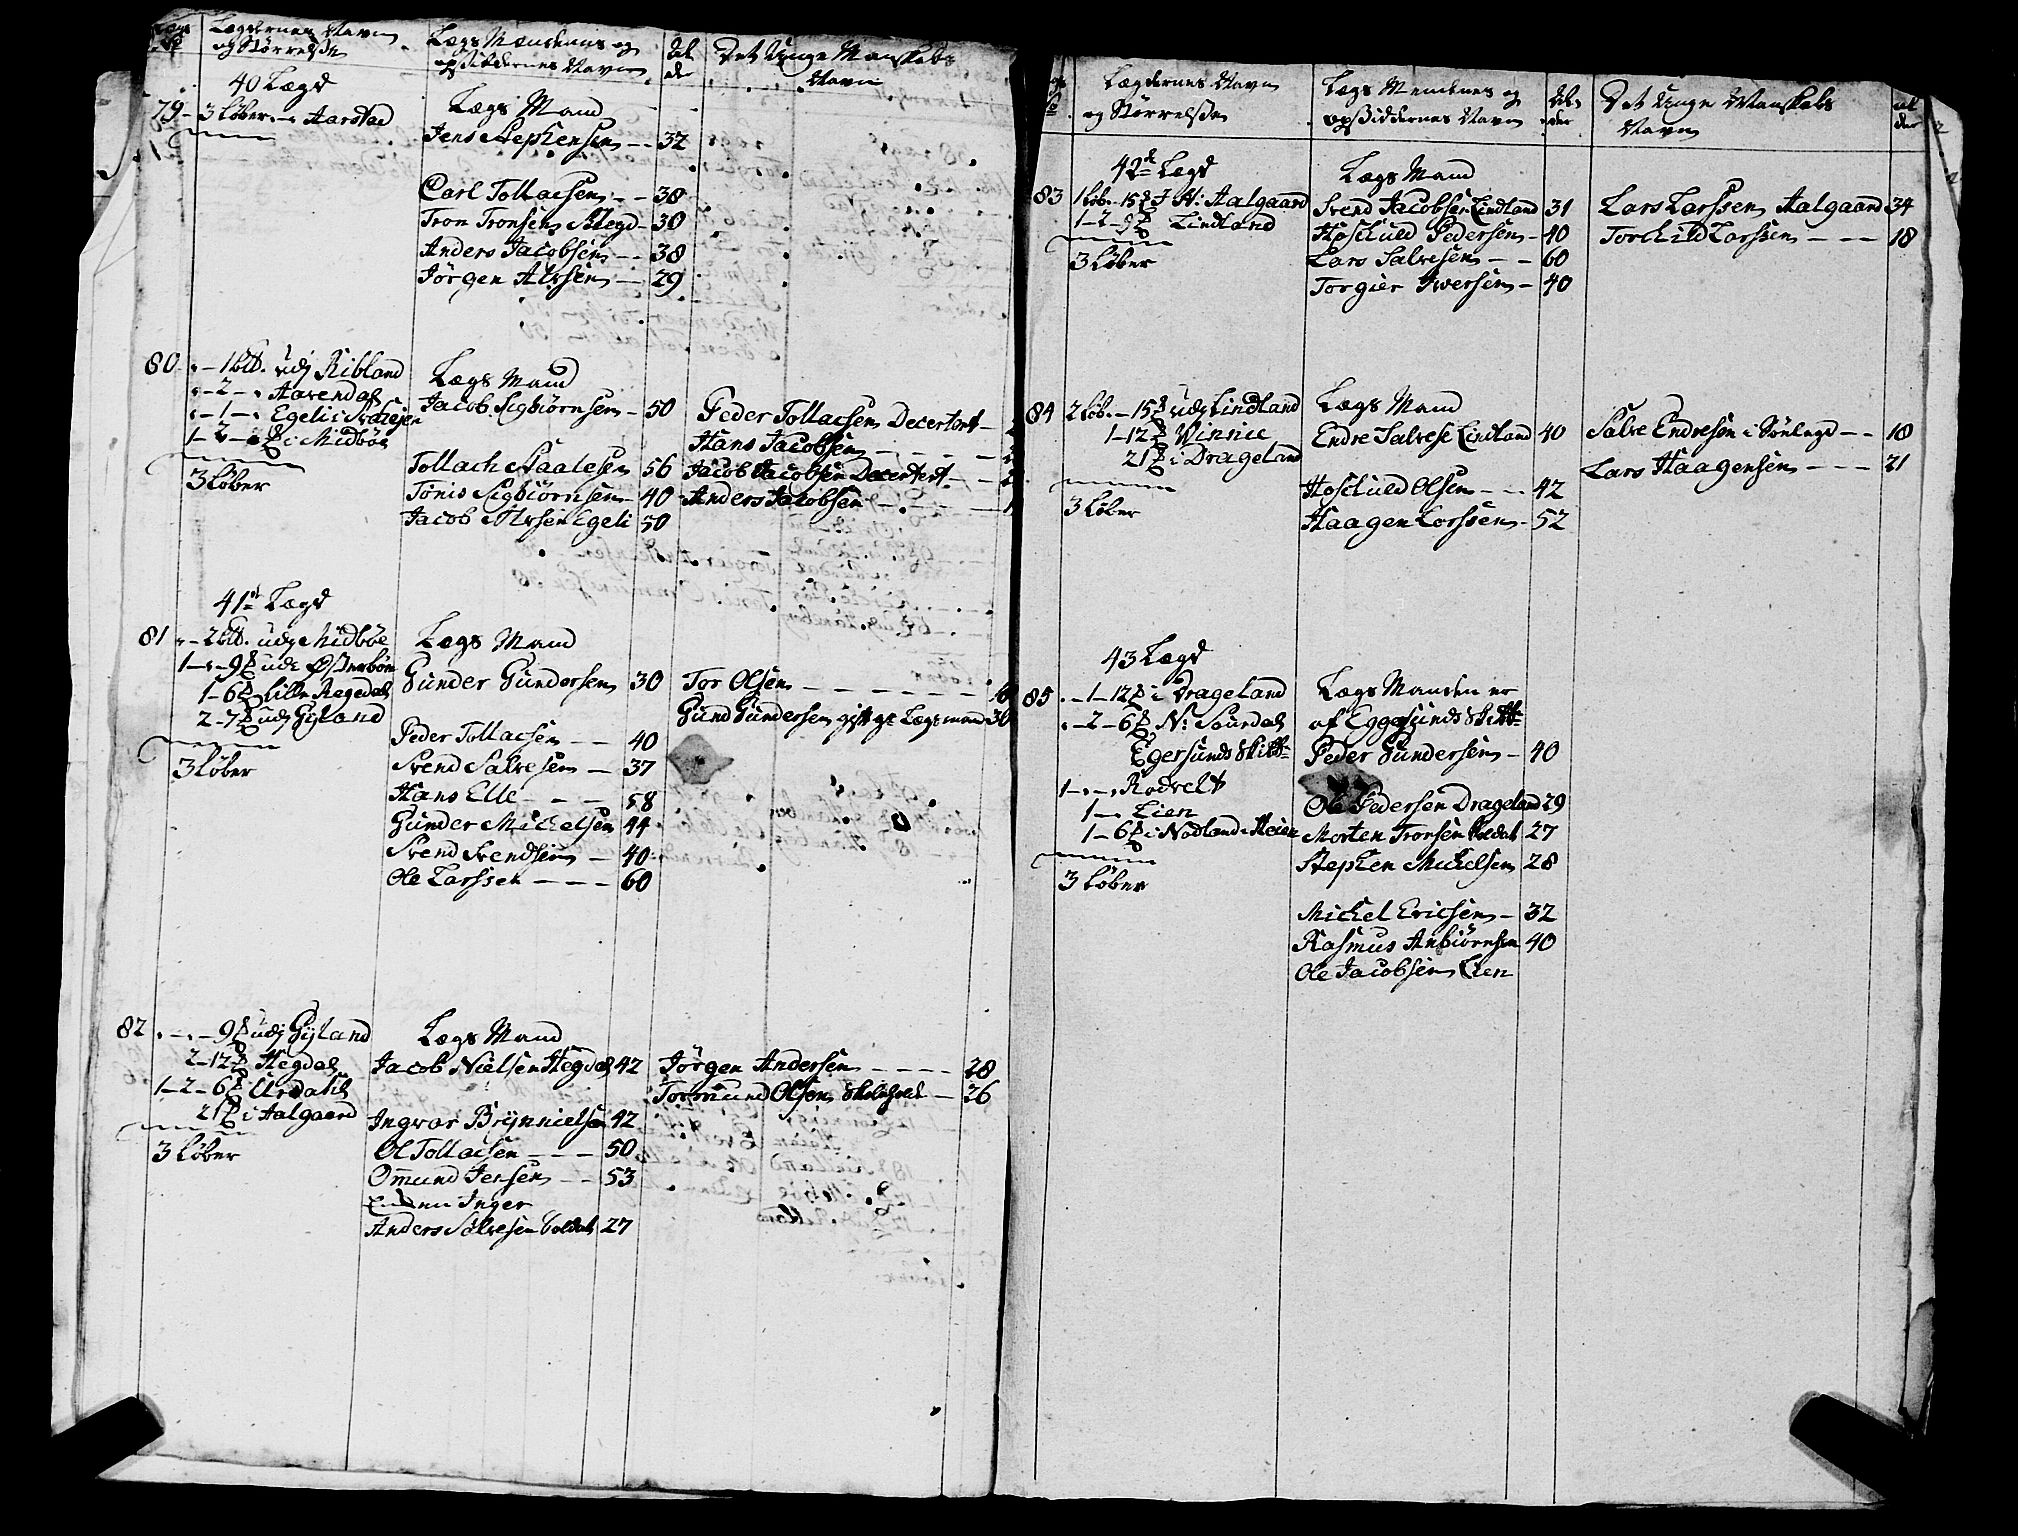 Lægdernes Navn
og Størrelse
Lægs Mændenis og
opsiddernes Navn
Al
der
Det Unge Manskabs
Navn
40 Lægd
79 - 3 Løber - i Aarstad
Lægs Mand
Jens Stephensen - 32
Carl Tollacsen - - 38
Tron Tronsen Slegd - 30
Anders Jacobsen - - 38
Jørgen Atlesen - 29
80 - 1 btt. udj Ribland
- 2 - Aarendal
- 1 - Egeli
1 - 2 - i Midbøe
3 Løber
Lægs Mand
Jacob Sigbiørnsen - 50
Tollach Staalesen 56
Tønis Sigbiørnsen - 40
Jacob Egeli 50
Peder Tollacsen Decertert -
Hans Jacobsen - - -
Jacob Jacobsen Decertert - -
Anders Jacobsen - - -
41de Lægd
81 - 2 btt. udj Midbøe
1 - - 9 udi Østerbøe
1 - 6 Lille Regedal
2 - 7 udj Gyland
3 Løber
Lægs Mand
Gunder Gundersen 30
Peder Tollacsen - - 40
Svend Salvesen - 37
Hans Elle - - - 58
Gunder Michelsen 44
Svend Svendsen - 40
Ole Larssen - - - 60
Tor Olsen - - - - - -
Gund Gundersen gift gl Lægs mand 30
82 - - 9 udj Gyland
2 - 12 Hegdal
1 - 2 - 6 Urdahl
21 i Aalgaard
3 Løber
Lægs Mand
Jacob Nielsen Hegdal 42
Ingvar Brynnielsen 42
Ol Tollacsen - - - 50
Omund Jensen - - 53
Enken Inger
Anders Salvesen Soldat 27
Jørgen Andersen - - - - 28
Tormund Olsen - 26
Lægdernes Navn
og Størrelsse
Lægs Mendenes og
opsiddernes Navn
Al
der
Det Unge Manskabs
Navn
al
der
42de Lægd
83 1 Løb. - 15 J N: Aalgaard
1 - 2 - 9 Lindland
3 Løber
Lægs Mand
Svend Jacobsen Lindland 31
Hoschuld Pedersen - 40
Lars Salvesen - - 60
Torgier Iversen - 40
Lars Larssen Aalgaard 34
Torkild Larssen - - - 18
84 2 Løb. - 15 udj Lindland
1 - 12 Vinnie
21 i Drageland
3 Løber
Lægs Mand
Endre Salvese Lindland 40
Hoschuld Olsen - - 42
Haagen Lorssen - 52
Salve Endresøn i Sønlegd - - 18
Lars Haagensen - - - 21
43 Lægd
85 - 1 - 12 i Drageland
- 2 - 6 N: Sourdal
Egersunds Skibr:
1 - - Rodvelt
1 - Lien
1 - 6 i Nodland Heien
3 Løber
Lægs Manden er
af Eggesunds Skibr:
Peder Gundersen - 40
Ole Pedersen Drageland 29
Morten Tronsen Soldat 27
Stephen Michelsen 28
Michel Ericsen - 32
Rasmus Anbiørnsen 40
Ole Jacobsen Lien